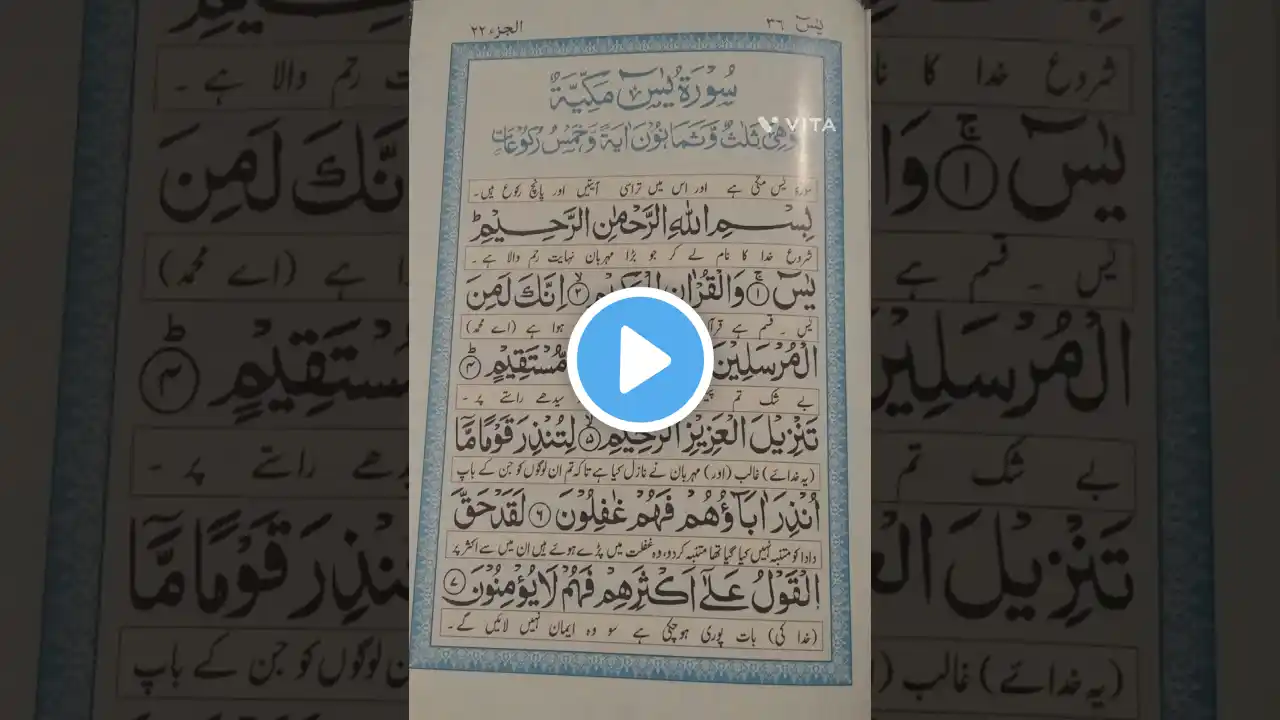 يٰسٓ ٣٦
الجزء ٢٢
سُوْرَةُ يٰسٓ مَكِّيَّةٌ
VITA
وَّهِىَ ثَلٰثٌ وَّثَمَانُوْنَ اٰيَةً وَّخَمْسُ رُكُوْعَاتٍ
سورۂ یٰس مکی ہے اور اس میں تراسی آیتیں اور پانچ رکوع ہیں۔
بِسْمِ اللّٰهِ الرَّحْمٰنِ الرَّحِيْمِ
شروع خدا کا نام لے کر جو بڑا مہربان نہایت رحم والا ہے۔
يٰسٓ ۚ ١ وَالْقُرْاٰنِ الْحَكِيْمِ ۙ ٢ اِنَّكَ لَمِنَ
یٰس۔ قسم ہے قرآن ہوا ہے (اے محمد)
الْمُرْسَلِيْنَ مُّسْتَقِيْمٍ ؕ ٤
بے شک تم سیدھے راستے پر۔
تَنْزِيْلَ الْعَزِيْزِ الرَّحِيْمِ ۙ ٥ لِتُنْذِرَ قَوْمًا مَّآ
(یہ خدائے) غالب (اور) مہربان نے نازل کیا ہے تاکہ تم ان لوگوں کو جن کے باپ
اُنْذِرَ اٰبَآؤُهُمْ فَهُمْ غٰفِلُوْنَ ٦ لَقَدْ حَقَّ
دادا کو متنبہ نہیں کیا گیا تھا متنبہ کر دو، وہ غفلت میں پڑے ہوئے ہیں ان میں سے اکثر پر
الْقَوْلُ عَلٰٓى اَكْثَرِهِمْ فَهُمْ لَا يُؤْمِنُوْنَ ٧
(خدا کی) بات پوری ہو چکی ہے سو وہ ایمان نہیں لائیں گے۔